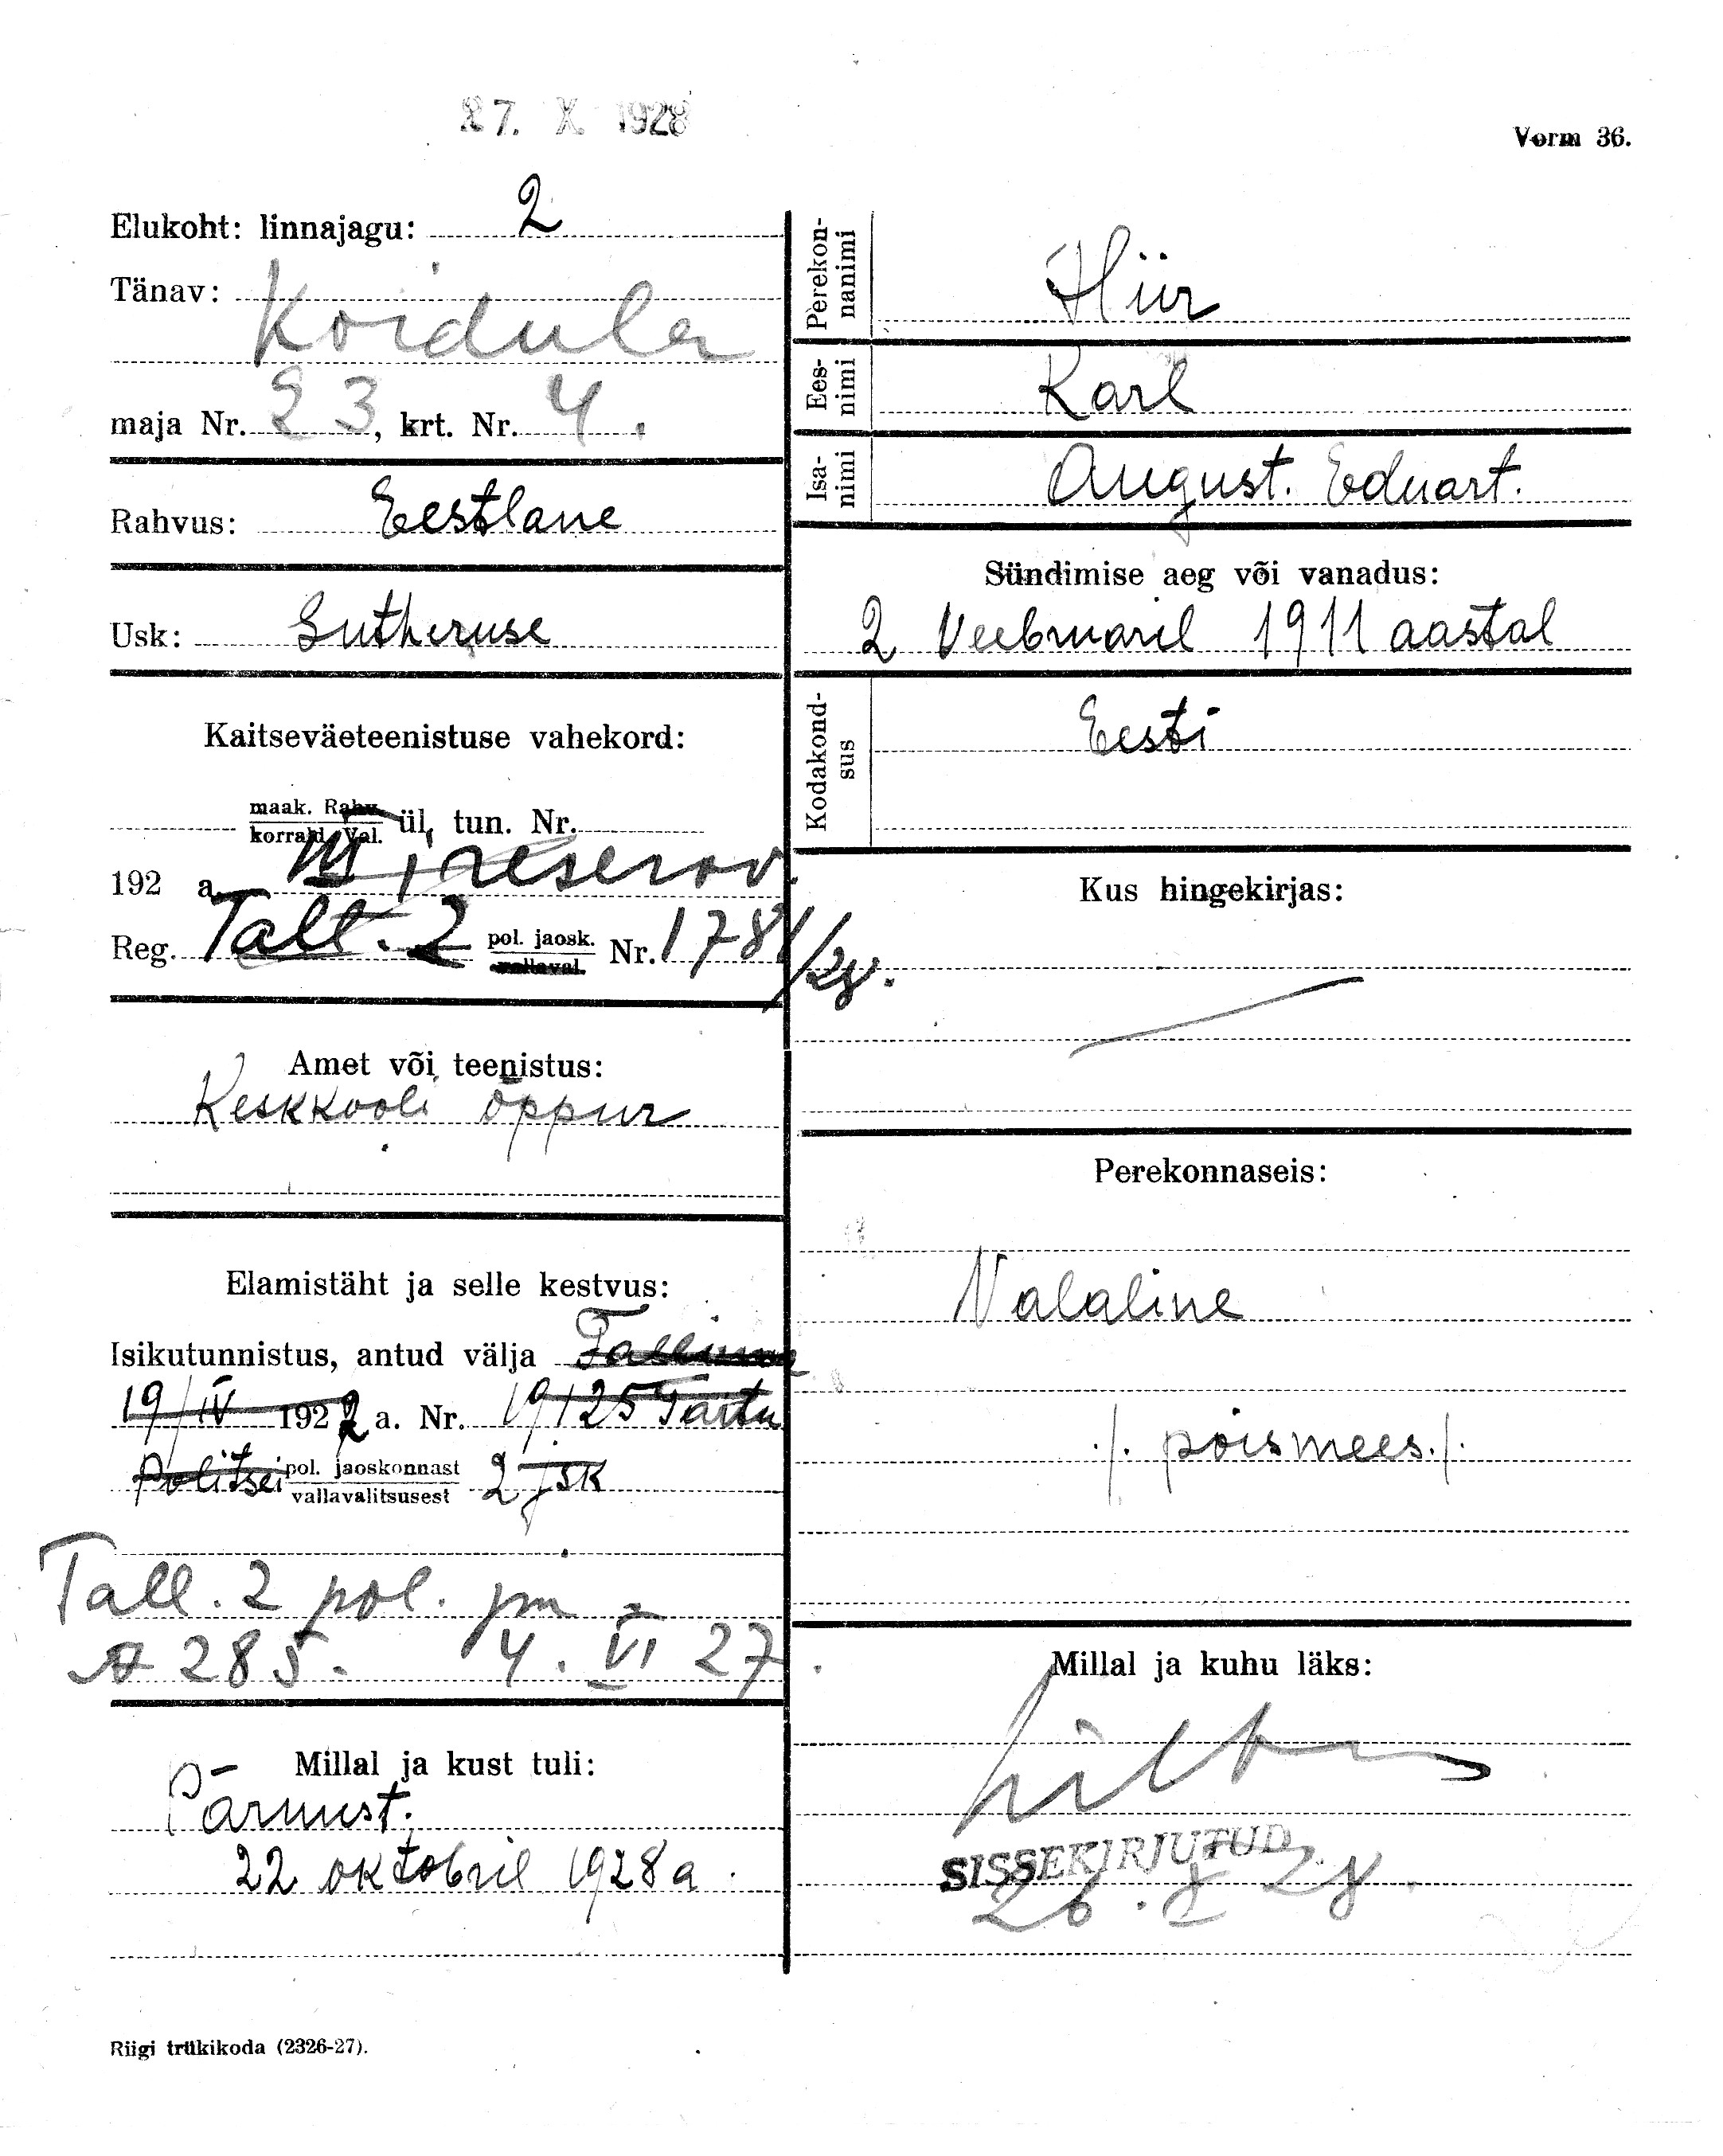 27. X 1928
Vorm 36.
Elukoht: linnajagu: 2
Tänav:
Koidula
maja Nr. 23, krt. Nr. 4.
Rahvus: Eestlane
Usk: Lutheruse
Kaitseväeteenistuse vahekord:
maak. Rahv.
korrald. Val. ül. tun. Nr.
192 a.
Reg. Tall. 2 pol. jaosk. Nr. 1781/28.
vallaval.
Amet või teenistus:
Keskkooli õppur
Elamistäht ja selle kestvus:
Isikutunnistus, antud välja Tallinna
19/IV 1922 a. Nr. 19125 Tartu
Politsei pol. jaoskonnast 2 jsk
vallavalitsusest
Tall. 2 pol. jm
A 285. 4. VI 27.
Millal ja kust tuli:
Pärnust.
22 oktobril 1928 a.
Perekon-
nanimi
Hiir
Ees-
nimi
Karl
Isa-
nimi
August. Eduart.
Sündimise aeg või vanadus:
2 Veebruaril 1911 aastal
Kodakond-
sus
Eesti
Kus hingekirjas:
Perekonnaseis:
Valaline
./. poismees./.
Millal ja kuhu läks:
SISSEKIRJUTUD
26. X 28.
Riigi trükikoda (2326-27).